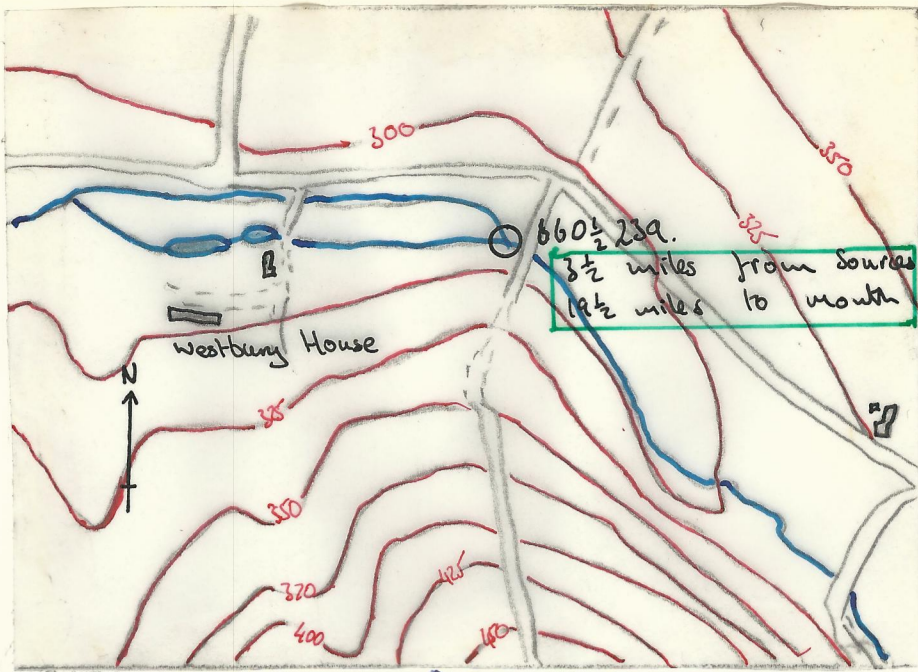 300
350
325
660½ 239.
3½ miles from Sources
19½ miles to mouth
Westbury House
N
325
350
320
400
425
450